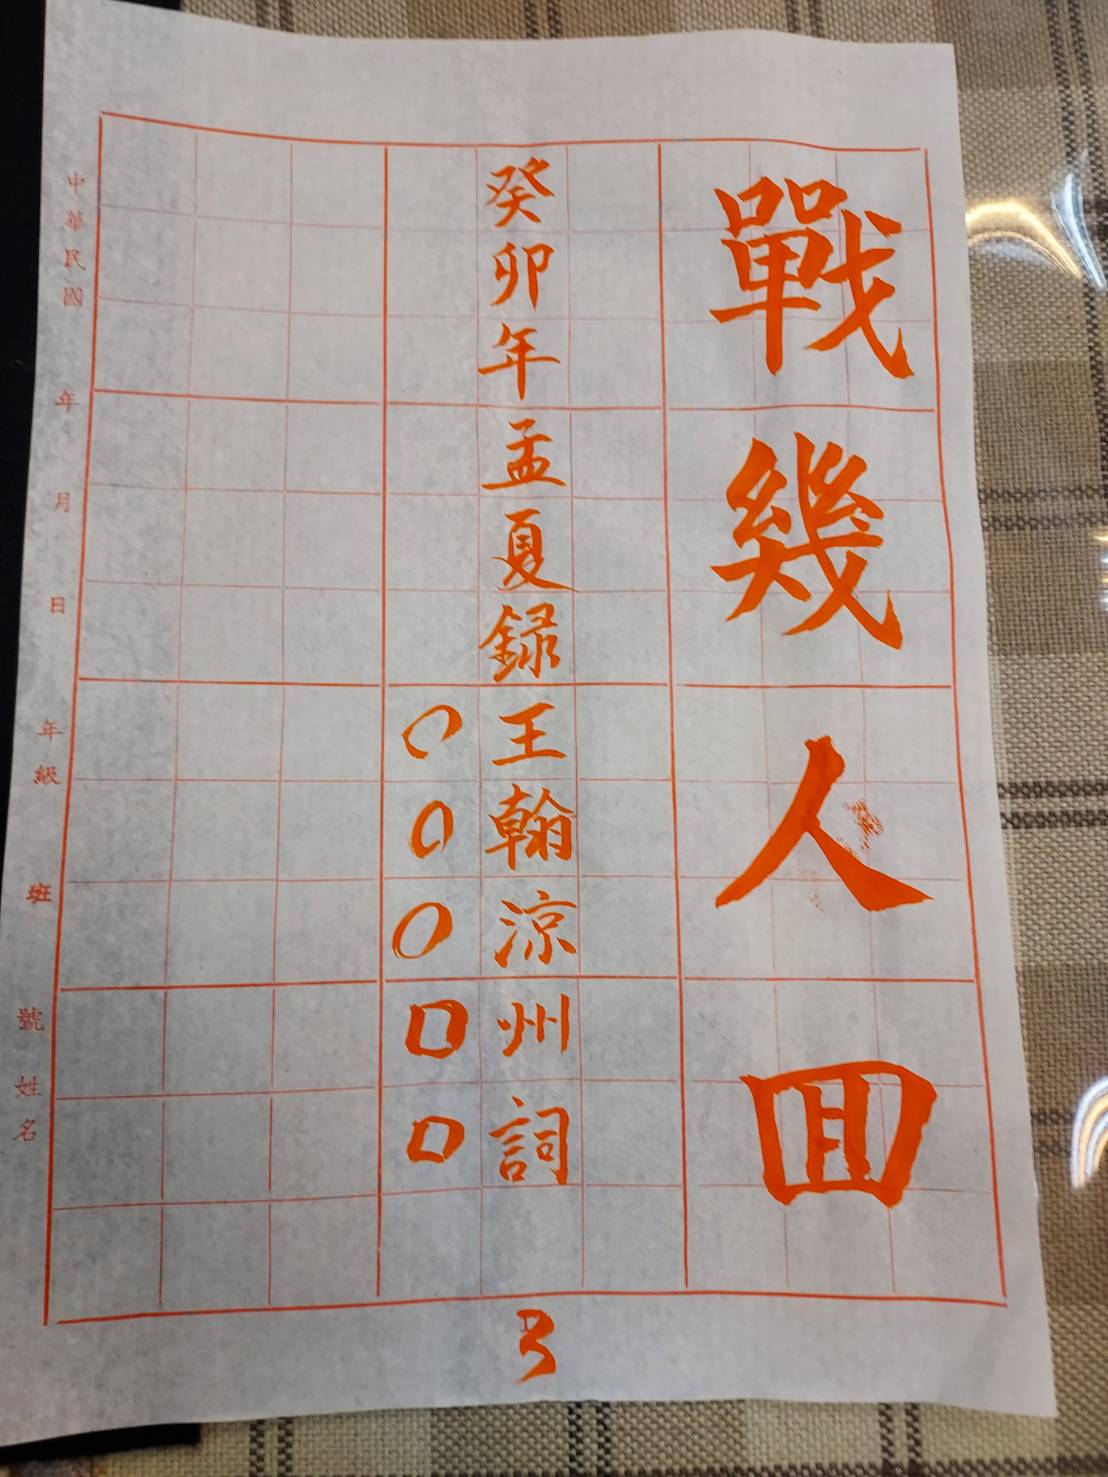 戰幾人回
癸卯年孟夏録王翰涼州詞
〇〇〇囗囗
中華民國 年 月 日 年級 班 號 姓名
3